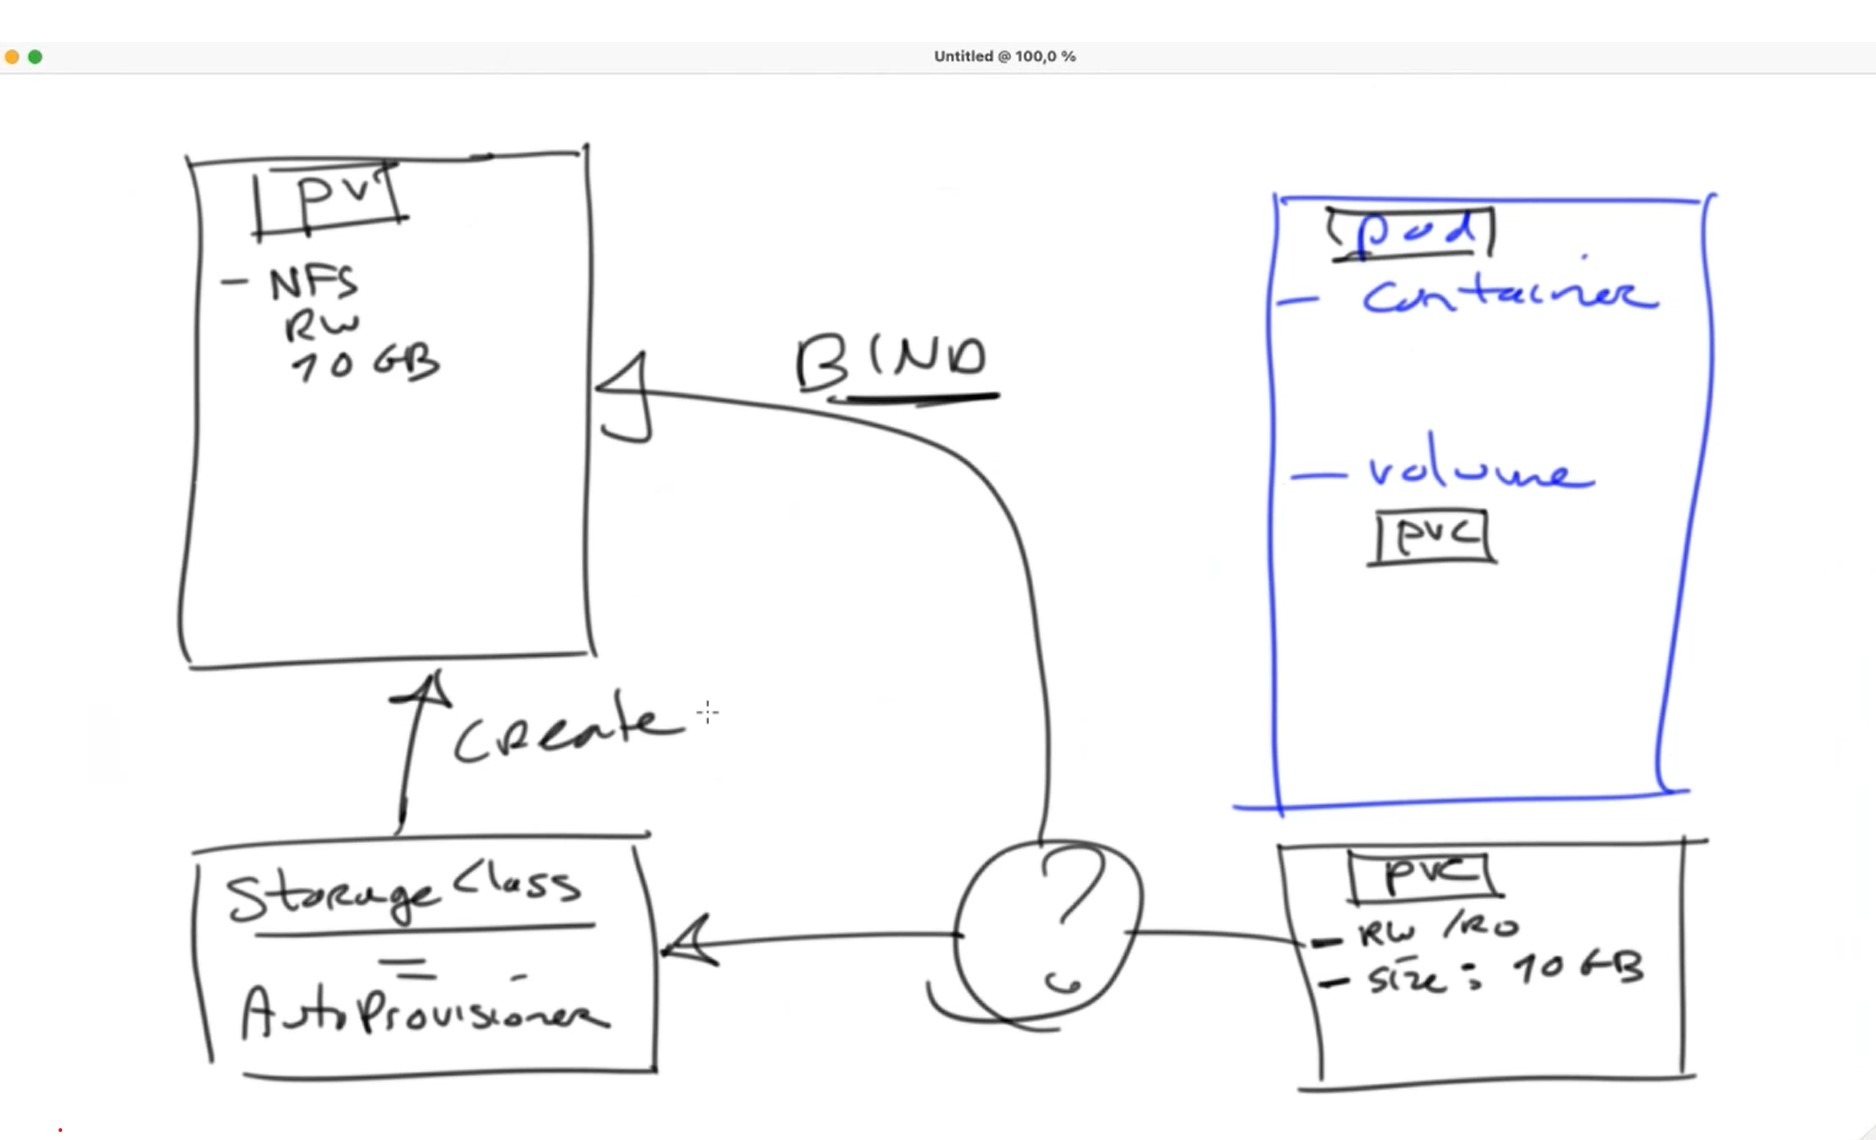 Untitled @ 100,0 %
pv
- NFS
RW
10 GB
BIND
pod
- container
- volume
pvc
create
Storage Class
=
AutoProvisioner
?
pvc
- RW /RO
- size: 10 GB